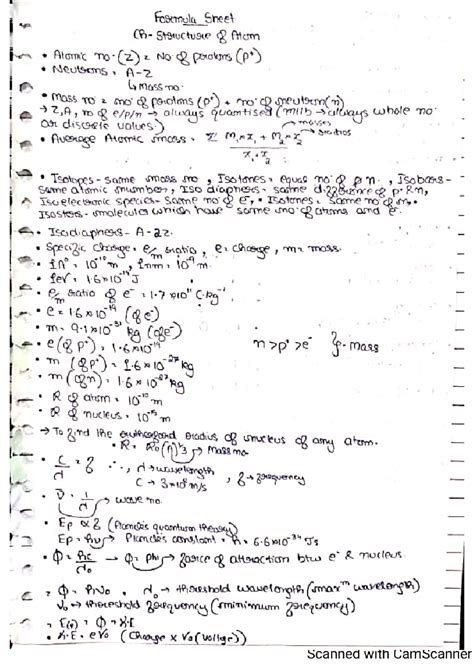 Formula Sheet
Ch- Structure of Atom
• Atomic no. (Z) = No of protons (p⁺)
• Neutrons = A-Z
↳ Mass no.
• Mass no = no of protons (p⁺) + no of neutron(n)
→ Z, A, no of e/p/n → always quantised (mtlb → always whole no
or discrete values.) → masses
• Average Atomic mass = Σ M₁x₁ + M₂x₂ → ratios
x₁+x₂
• Isotopes - same mass no, Isotones = equal no of n, Isobars -
same atomic number, Iso diaphers - same difference of p & n,
Isoelectronic species - same no of e⁻, • Isotones = same no of n, •
Isosters - molecules which have same no of atoms and e⁻.
• Isodiaphers - A-2Z.
• Specific Charge = e/m ratio, e = charge, m = mass.
• 1A° = 10⁻¹⁰ m, 1nm = 10⁻⁹ m.
• 1eV = 1.6×10⁻¹⁹ J
• e/m ratio of e⁻ = 1.7×10¹¹ C·kg⁻¹
• e = 1.6×10⁻¹⁹ (of e⁻)
• m = 9.1×10⁻³¹ kg (of e⁻)
• e (of p⁺) = 1.6×10⁻¹⁹ n > p⁺ > e⁻ } mass
• m (of p⁺) = 1.6×10⁻²⁷ kg
• m (of n) = 1.6×10⁻²⁷ kg
• R of atom = 10⁻¹⁰ m
• R of nucleus = 10⁻¹⁵ m
→ To find the rutherford radius of nucleus of any atom.
• R = R₀(A)^⅓ → Mass no.
• C/λ = f ∴, λ → wavelength, f → frequency
C → 3×10⁸ m/s
• ν̄ = 1/λ → wave no.
• Ep ∝ f (Planck's quantum theory)
• Ep = hν → Planck's constant = h = 6.6×10⁻³⁴ Js
• Φ = hc/λ₀ → Φ = phi → force of attraction btw e⁻ & nucleus
= Φ = hν₀ • λ₀ → threshold wavelength (maxᵐ wavelength)
ν₀ → threshold frequency (minimum frequency)
= Φ + K.E
• K.E = eV₀ (Charge × V₀ (voltage))
Scanned with CamScanner